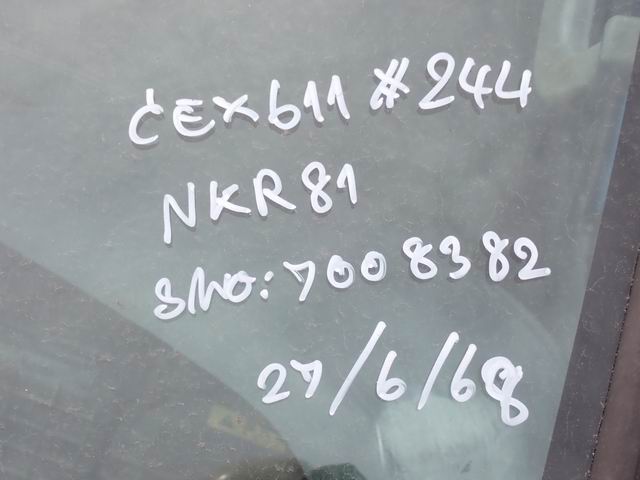 CEX611 #244
NKR81
SNO: 7008382
27/6/68